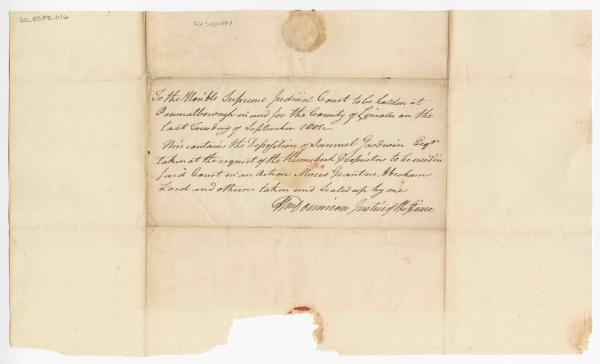 26 Sept 1801
To the Honble Supreme Judicial Court to be holden at
Pownalborough in and for the County of Lincoln on the
last Tuesday of September 1801.
This contains the Deposition of Samuel Goodwin Esqr
taken at the request of the Kennebeck Proprietors to be used in
said Court in an Action Moses
Lord and others taken and Sealed up by me
Justice of the Peace